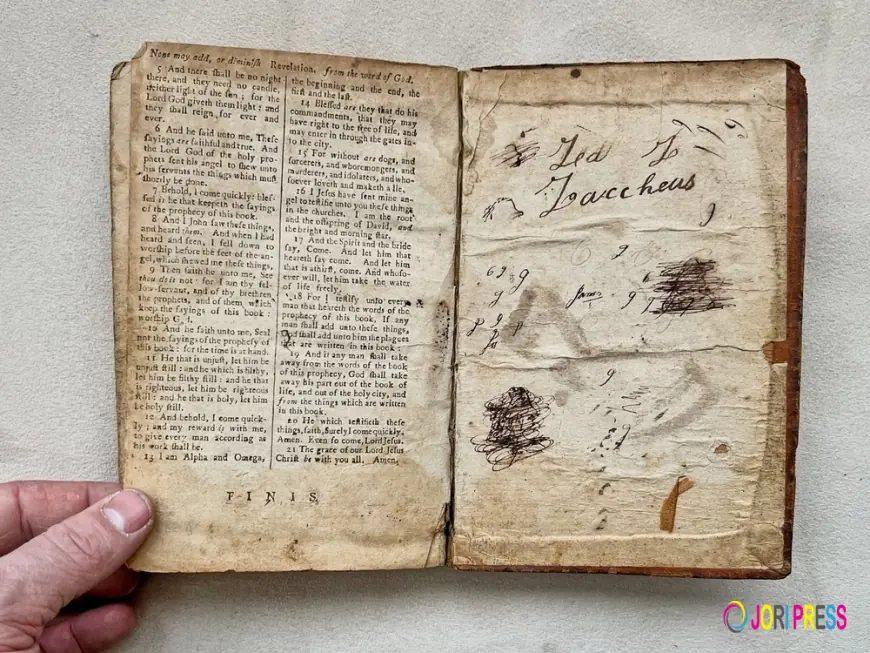 None may add, or diminiſh Revelation. from the word of God.
5 And there ſhall be no night
there, and they need no candle,
neither light of the ſun; for the
Lord God giveth them light: and
they ſhall reign for ever and
ever.
6 And he ſaid unto me, Theſe
ſayings are faithful and true. And
the Lord God of the holy pro-
phets ſent his angel to ſhew unto
his ſervants the things which muſt
ſhortly be done.
7 Behold, I come quickly: bleſ-
ſed is he that keepeth the ſayings
of the prophecy of this book.
8 And I John ſaw theſe things,
and heard them. And when I had
heard and ſeen, I fell down to
worſhip before the feet of the an-
gel, which ſhewed me theſe things,
9 Then ſaith he unto me, See
thou do it not: for I am thy fel-
low-ſervant, and of thy brethren
the prophets, and of them which
keep the ſayings of this book:
worſhip G d.
10 And he ſaith unto me, Seal
not the ſayings of the propheſy of
this book: for the time is at hand.
11 He that is unjuſt, let him be
unjuſt ſtill: and he which is filthy,
let him be filthy ſtill: and he that
is righteous, let him be righteous
ſtill: and he that is holy, let him
be holy ſtill.
12 And behold, I come quick-
ly; and my reward is with me,
to give every man according as
his work ſhall be.
13 I am Alpha and Omega,
the beginning and the end, the
firſt and the laſt.
14 Bleſſed are they that do his
commandments, that they may
have right to the tree of life, and
may enter in through the gates in-
to the city.
15 For without are dogs, and
ſorcerers, and whoremongers, and
murderers, and idolaters, and who-
ſoever loveth and maketh a lie.
16 I Jeſus have ſent mine an-
gel to teſtifie unto you theſe things
in the churches. I am the root
and the offspring of David, and
the bright and morning ſtar.
17 And the Spirit and the bride
ſay, Come. And let him that
heareth ſay come. And let him
that is athirſt, come. And whoſo-
ever will, let him take the water
of life freely.
18 For I teſtify unto every
man that heareth the words of the
prophecy of this book, If any
man ſhall add unto theſe things,
God ſhall add unto him the plagues
that are written in this book:
19 And if any man ſhall take
away from the words of the book
of this prophecy, God ſhall take
away his part out of the book of
life, and out of the holy city, and
from the things which are written
in this book.
20 He which teſtifieth theſe
things, ſaith, Surely I come quickly.
Amen. Even ſo come, Lord Jeſus.
21 The grace of our Lord Jeſus
Chriſt be with you all. Amen.
FINIS.
Zaccheus
James
JORI PRESS